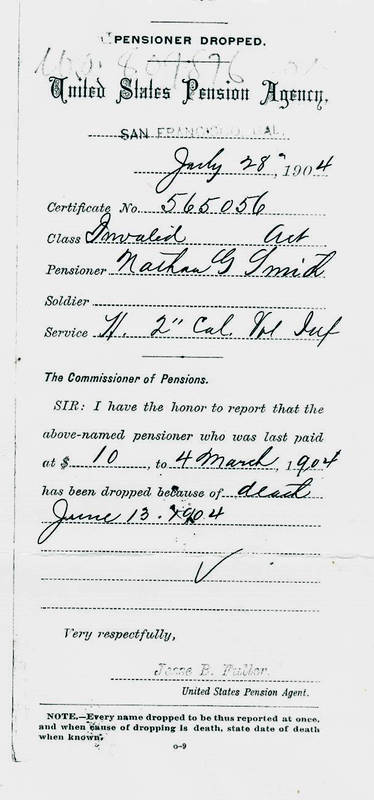 PENSIONER DROPPED.
United States Pension Agency,
SAN FRANCISCO, CAL.
July 28", 1904
Certificate No. 565056
Class Invalid Act
Pensioner Nathan G Smith
Soldier
Service H. 2" Cal. Vol Inf
The Commissioner of Pensions.
SIR: I have the honor to report that the
above-named pensioner who was last paid
at $ 10, to 4 March, 1904
has been dropped because of death
June 13. 1904
Very respectfully,
Jesse B. Fuller,
United States Pension Agent.
NOTE.—Every name dropped to be thus reported at once,
and when cause of dropping is death, state date of death
when known.
o-9